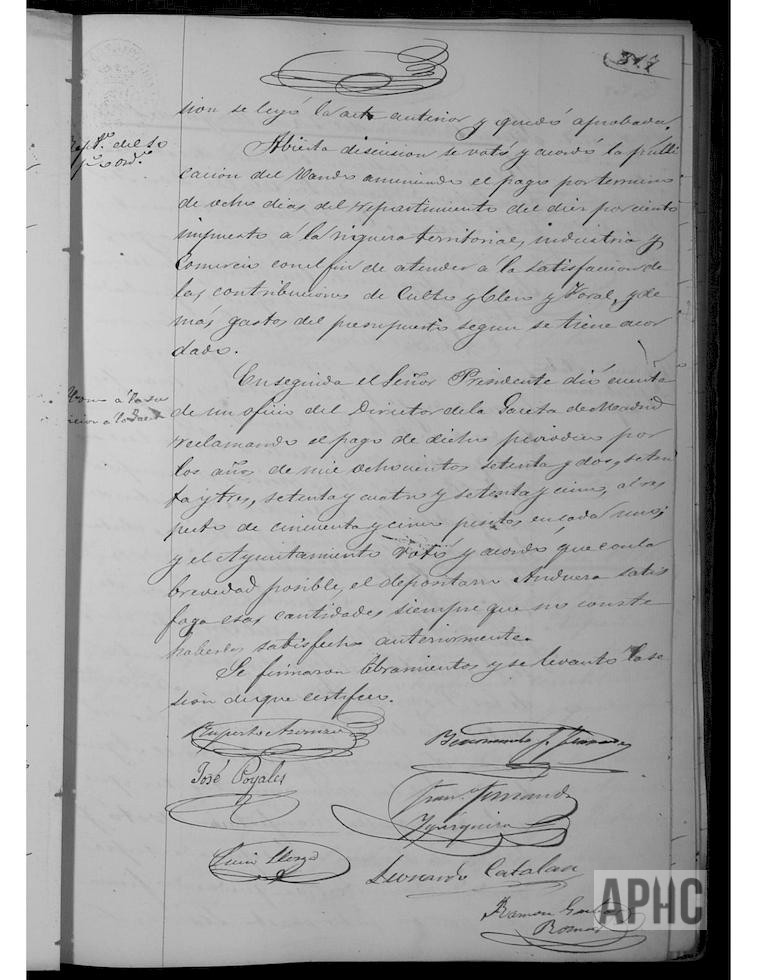 317
sion se leyó la acta anterior y quedó aprobada.
Abierta discusion se votó y acordó la publi
cacion del Vando anunciando el pago por termino
de ocho dias del repartimiento del diez por ciento
impuesto á la riqueza territorial, industria y
Comercio con el fin de atender á la satisfaccion de
las contribuciones de Culto y Clero y Foral, y de
más gastos del presupuesto segun se tiene acor
dado.
En seguida el Señor Presidente dió cuenta
de un oficio del Director de la Gaceta de Madrid
reclamando el pago de dicho periodico por
los años de mil ochocientos setenta y dos, seten
ta y tres, setenta y cuatro y setenta y cinco, al res
pecto de cincuenta y cinco pesetas en cada uno;
y el Ayuntamiento votó y acordó que con la
brevedad posible, el depositario Andueza satis
faga esas cantidades siempre que no conste
haberlas satisfecho anteriormente.
Se firmaron libramientos y se levantó la se
sion de que certifico.
José Poyales
Fran.
Leonardo Catalan
Ramon
APHC